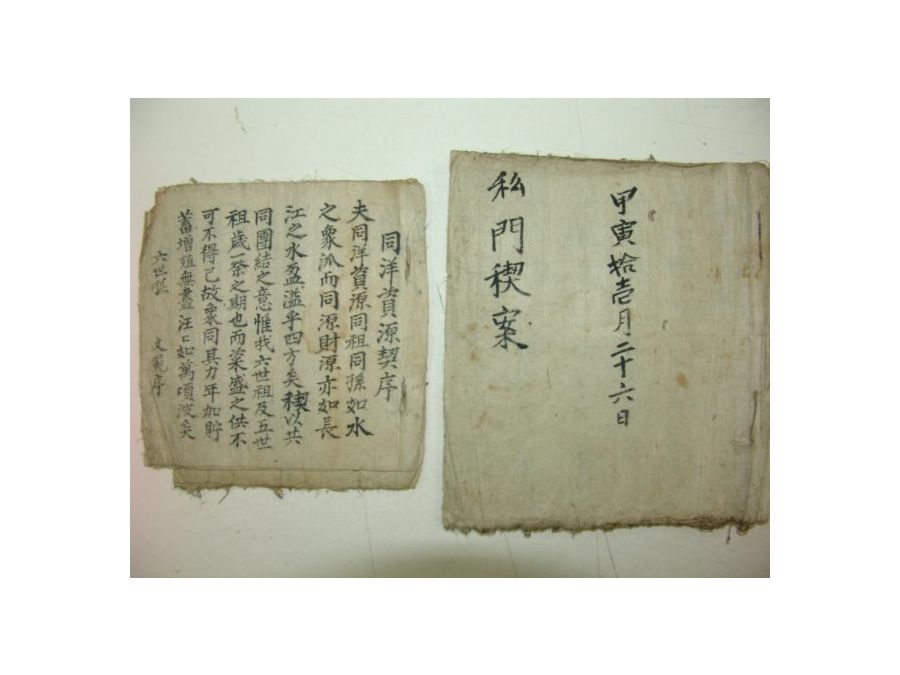 甲寅拾壱月二十六日
私門稧案
同洋資源契序
夫同洋資源同祖同孫如水
之衆派而同源財源亦如長
江之水盈溢乎四方矣稧以共
同團結之意惟我六世祖及五世
祖歲一祭之期也而粢盛之供不
可不得已故衆同其力年加貯
蓄增殖無盡汪〻如萬頃波矣
六世 文範序